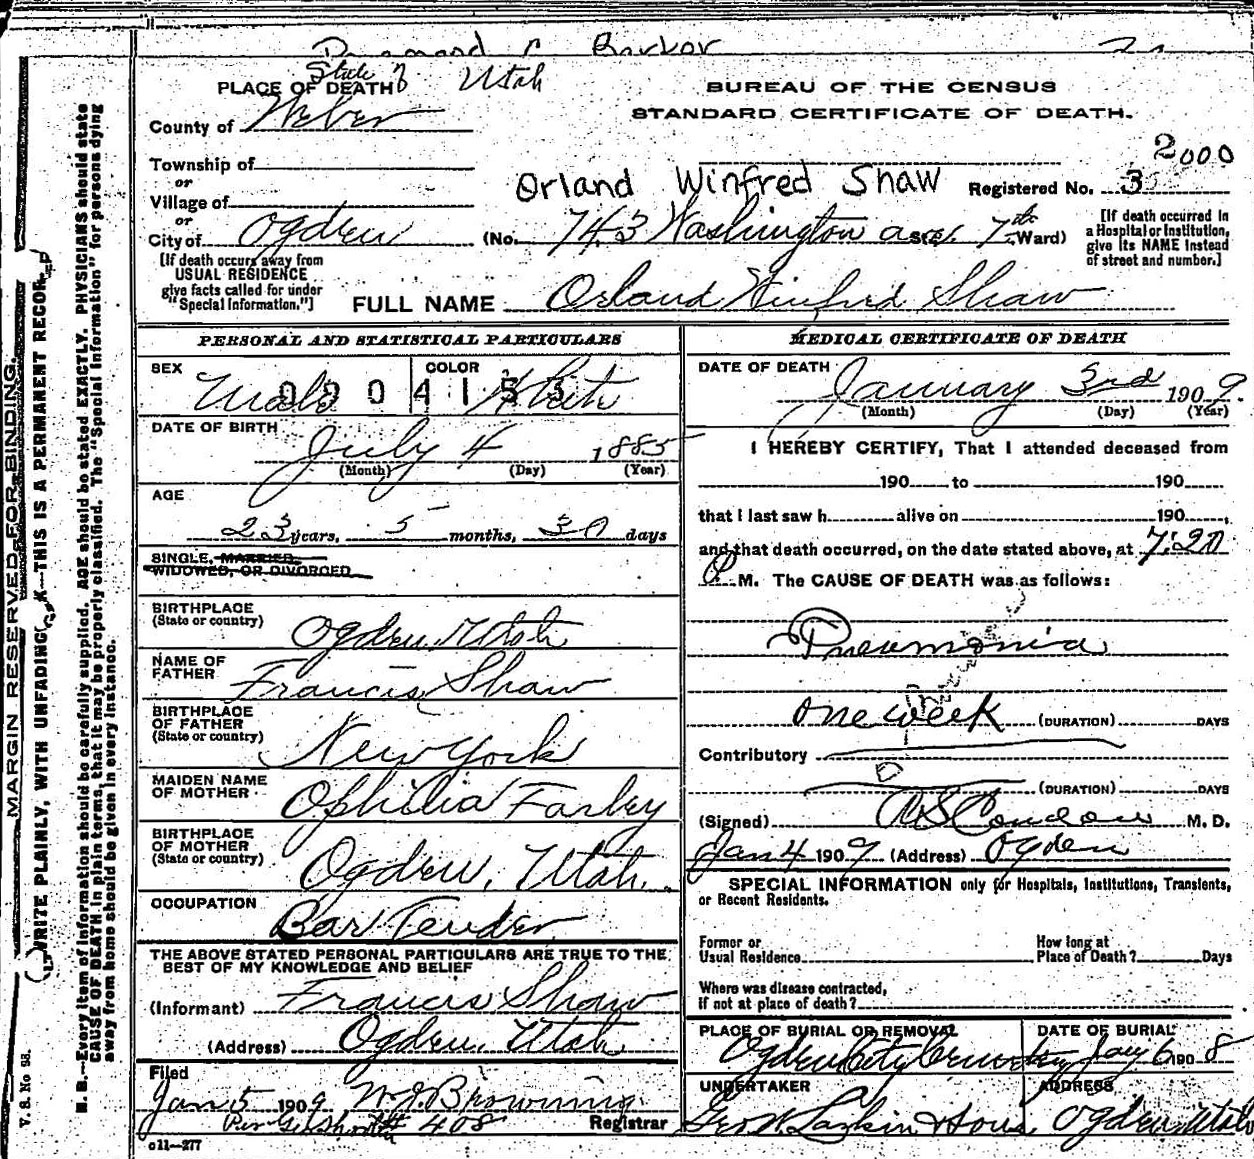 Barker
PLACE OF DEATH State of Utah
BUREAU OF THE CENSUS
STANDARD CERTIFICATE OF DEATH.
County of Weber
2000
Township of
or
Orland Winfred Shaw
Registered No. 3
Village of
or
City of Ogden (No. 743 Washington ave St. 7th Ward)
[If death occurred in a Hospital or Institution, give its NAME instead of street and number.]
[If death occurs away from USUAL RESIDENCE give facts called for under "Special Information."]
FULL NAME Orland Winfred Shaw
PERSONAL AND STATISTICAL PARTICULARS
SEX Male
COLOR White
DATE OF BIRTH
July 4 1885
(Month) (Day) (Year)
AGE
23 years, 5 months, 30 days
SINGLE, MARRIED,
WIDOWED, OR DIVORCED
BIRTHPLACE
(State or country) Ogden, Utah
NAME OF
FATHER Francis Shaw
BIRTHPLACE
OF FATHER
(State or country) New York
MAIDEN NAME
OF MOTHER Ophilia Farley
BIRTHPLACE
OF MOTHER
(State or country) Ogden, Utah.
OCCUPATION
Bar Tender
THE ABOVE STATED PERSONAL PARTICULARS ARE TRUE TO THE
BEST OF MY KNOWLEDGE AND BELIEF
(Informant) Francis Shaw
(Address) Ogden, Utah
Filed
Jan 5 1909 Browning
408 Registrar
c11—277
MEDICAL CERTIFICATE OF DEATH
DATE OF DEATH
January 3rd 1909.
(Month) (Day) (Year)
I HEREBY CERTIFY, That I attended deceased from
190 to 190
that I last saw h alive on 190,
and that death occurred, on the date stated above, at 7:20
P. M. The CAUSE OF DEATH was as follows:
Pneumonia
one week (DURATION) DAYS
Contributory
(DURATION) DAYS
(Signed) Condon M. D.
Jan 4 1909 (Address) Ogden
SPECIAL INFORMATION only for Hospitals, Institutions, Transients,
or Recent Residents.
Former or
Usual Residence
How long at
Place of Death? Days
Where was disease contracted,
if not at place of death?
PLACE OF BURIAL OR REMOVAL
Ogden City Cemetery
DATE OF BURIAL
Jany 6 1908
UNDERTAKER
Geo W. Larkin & Sons
ADDRESS
Ogden Utah
MARGIN RESERVED FOR BINDING.
WRITE PLAINLY, WITH UNFADING K—THIS IS A PERMANENT RECOR
N. B.—Every item of information should be carefully supplied. AGE should be stated EXACTLY. PHYSICIANS should state
CAUSE OF DEATH in plain terms, that it may be properly classified. The "Special Information" for persons dying
away from home should be given in every instance.
V. S. No